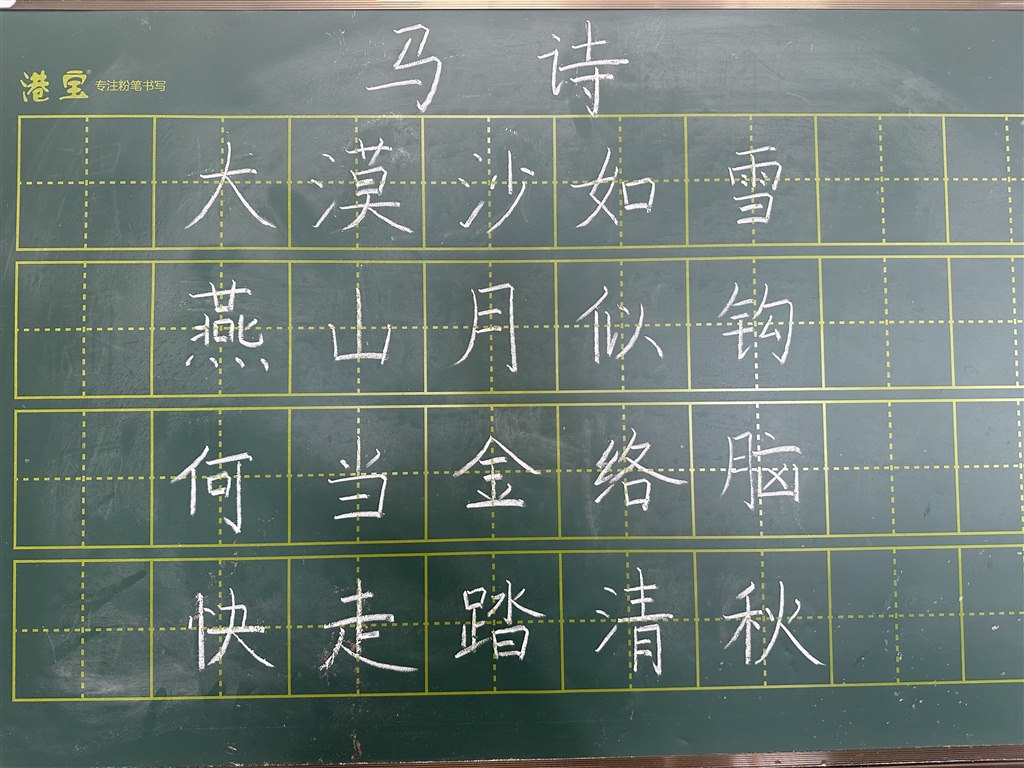 马诗
港宝® 专注粉笔书写
大漠沙如雪
燕山月似钩
何当金络脑
快走踏清秋